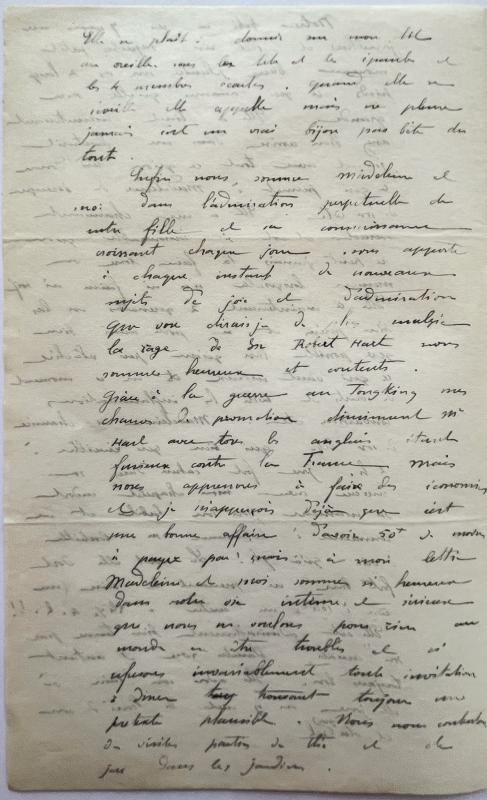 Elle se plaît à dormir sur mon lit
un oreiller sous la tête et le
les 4 membres écartés. quand elle se
réveille elle appelle mais ne pleure
jamais c'est un vrai bijou pas bête du
tout.
Enfin nous sommes Madeleine et
moi dans l'admiration perpétuelle de
notre fille et sa connaissance
croissant chaque jour nous apporte
à chaque instant de nouveaux
sujets de joie et d'admiration
que vous dirais je de plus malgré
la rage de Sir Robert Hart nous
sommes heureux et contents.
Grâce à la guerre au Tongking mes
chances de promotion diminuent Mr
Hart avec tous les anglais étant
furieux contre la France mais
nous apprenons à faire des économies
et je m'aperçois déjà que c'est
une bonne affaire d'avoir 50 de moins
à payer par mois à moi
Madeleine et moi sommes si heureux
dans notre vie intime et sérieuse
que nous ne voudrions pour rien au
monde en être troublés et
refusons invariablement toute invitation
à diner trouvant toujours un
prétexte plausible. Nous nous contentons
de visites parties de thé et de
jeu dans les jardins.